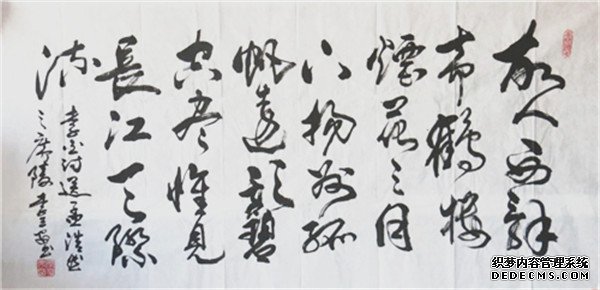 故人西辞
黄鶴楼
煙花三月
下揚州孤
帆遠影碧
空尽惟見
長江天際
流
李白诗送孟浩然
之広陵
织梦内容管理系统
DEDECMS.COM